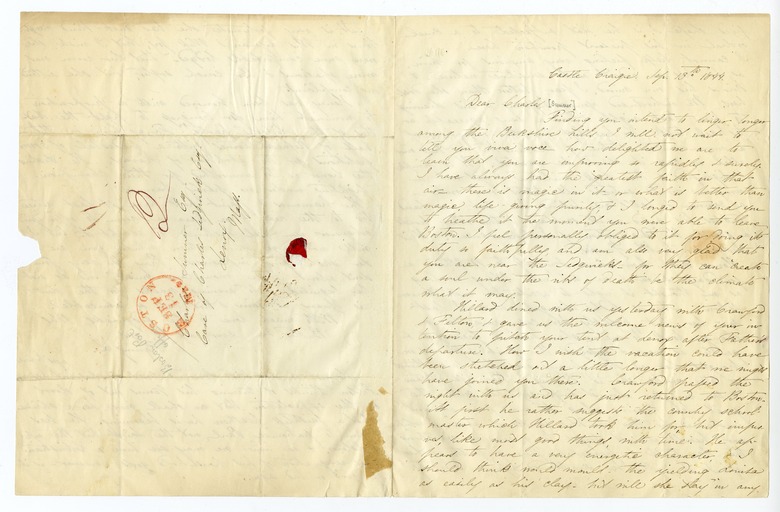 Castle Craigie Sep. 13th 1844.
Dear Charles [Sumner]
Finding you intend to longer longer
among the Berkshire hills I will not wait to
tell you viva voce how delighted we are to
learn that you are improving so rapidly & surely.
I have always had the greatest faith in that
air there is magic in it or what is better than
magic life giving purity, & I longed to send you
to breathe it the moment you were able to leave
Boston. I feel personally obliged to it for doing its
duty so faithfully and am also very glad that
you are near the Sedgwicks for they can create
a soul under the ribs of death be the climate
what it may.
Hillard dined with us yesterday with Crawford
& Felton & gave us the welcome news of your in
tention to pitch your tent at Lenox after Father's
departure. How I wish the vacation could have
been stretched out a little longer that we might
have joined you there. Crawford passed the
night with us and has just returned to Boston.
At first he rather suggests the country school
master which Hillard took him for, but improv
es, like most good things, with time. He ap
pears to have a very energetic character & I
should think would mould the yielding Louisa
as easily as his clay. but will she stay in any
2
Charles Sumner Esq
Care of Charles Sedgwick Esq.
Lenox
Mass.
BOSTON
SEP
13